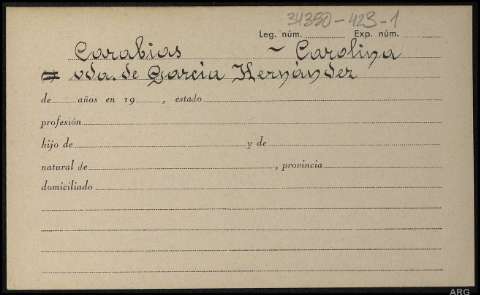 34390-423-1
Leg. núm. Exp. núm.
Carabias ~ Carolina
= vda. de García Hernández
de años en 19 , estado
profesión
hijo de y de
natural de , provincia
domiciliado
ARG